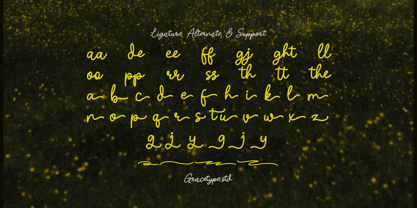 Ligature, Alternate, & Support
aa de ee ff gj ght ll
oo pp rr ss th tt the
a b c d e f h i k l m
n o p q r s t u v w x z
g j y g j y
Gracetypestd